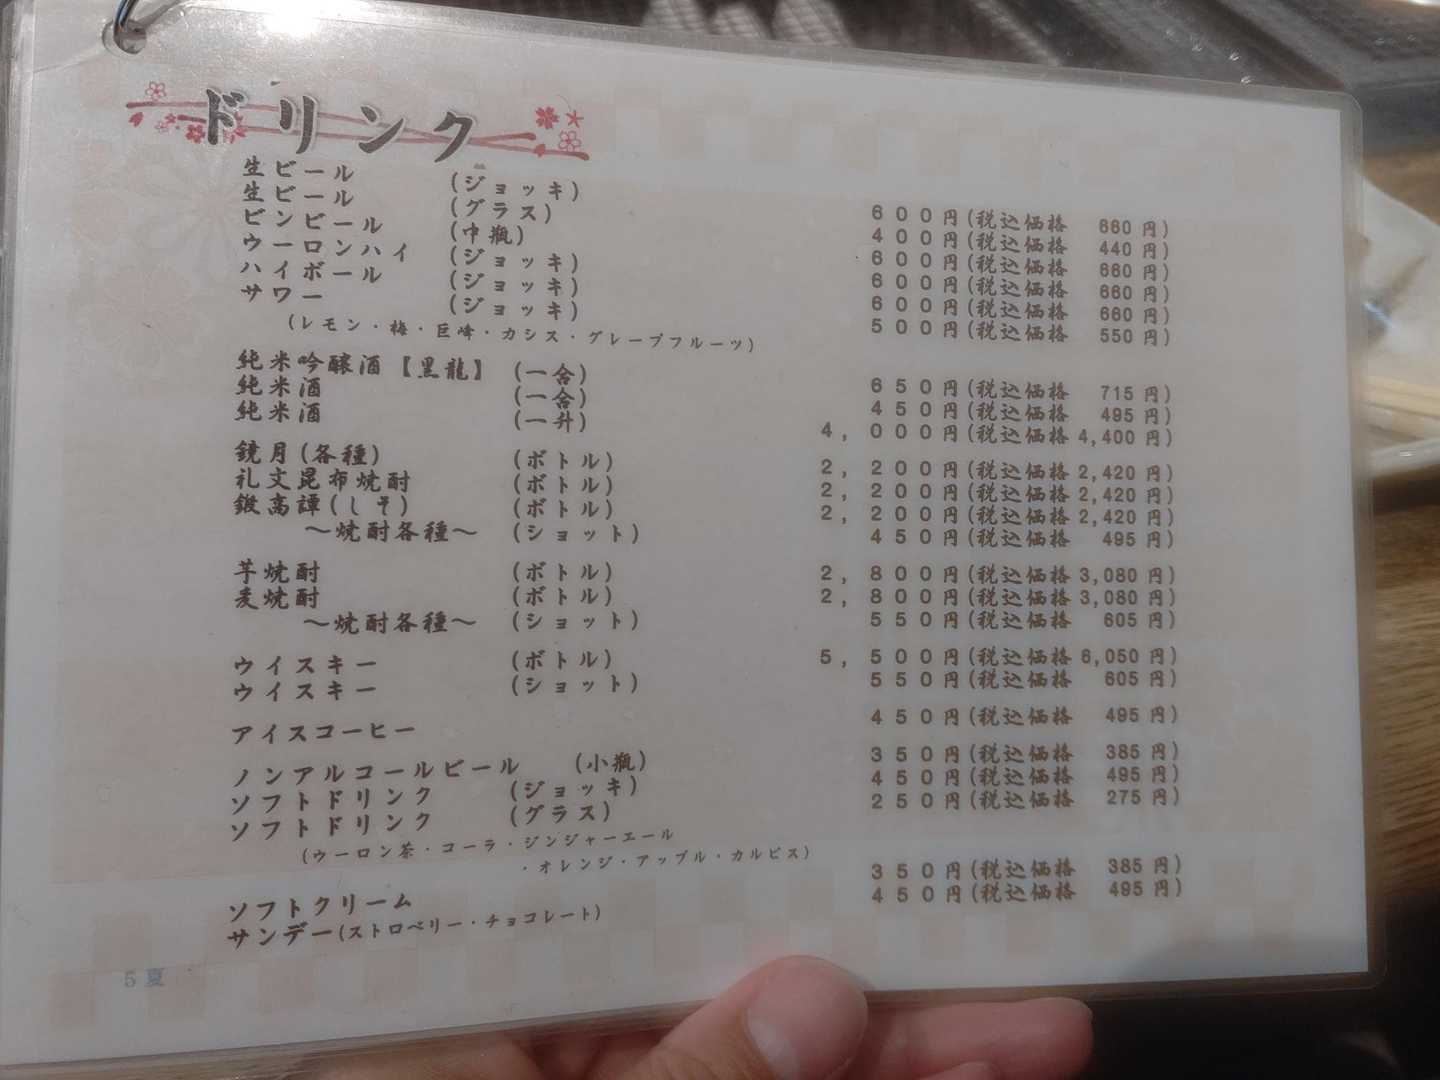 ドリンク
生ビール (ジョッキ) 600円(税込価格 660円)
生ビール (グラス) 400円(税込価格 440円)
ビンビール (中瓶) 600円(税込価格 660円)
ウーロンハイ (ジョッキ) 600円(税込価格 660円)
ハイボール (ジョッキ) 600円(税込価格 660円)
サワー (ジョッキ) 500円(税込価格 550円)
(レモン・梅・巨峰・カシス・グレープフルーツ)
純米吟醸酒【黒龍】 (一合) 650円(税込価格 715円)
純米酒 (一合) 450円(税込価格 495円)
純米酒 (一升) 4,000円(税込価格 4,400円)
鏡月(各種) (ボトル) 2,200円(税込価格 2,420円)
礼文昆布焼酎 (ボトル) 2,200円(税込価格 2,420円)
鍛高譚(しそ) (ボトル) 2,200円(税込価格 2,420円)
～焼酎各種～ (ショット) 450円(税込価格 495円)
芋焼酎 (ボトル) 2,800円(税込価格 3,080円)
麦焼酎 (ボトル) 2,800円(税込価格 3,080円)
～焼酎各種～ (ショット) 550円(税込価格 605円)
ウイスキー (ボトル) 5,500円(税込価格 6,050円)
ウイスキー (ショット) 550円(税込価格 605円)
アイスコーヒー 450円(税込価格 495円)
ノンアルコールビール (小瓶) 350円(税込価格 385円)
ソフトドリンク (ジョッキ) 450円(税込価格 495円)
ソフトドリンク (グラス) 250円(税込価格 275円)
(ウーロン茶・コーラ・ジンジャーエール
・オレンジ・アップル・カルピス)
ソフトクリーム 350円(税込価格 385円)
サンデー(ストロベリー・チョコレート) 450円(税込価格 495円)
5夏